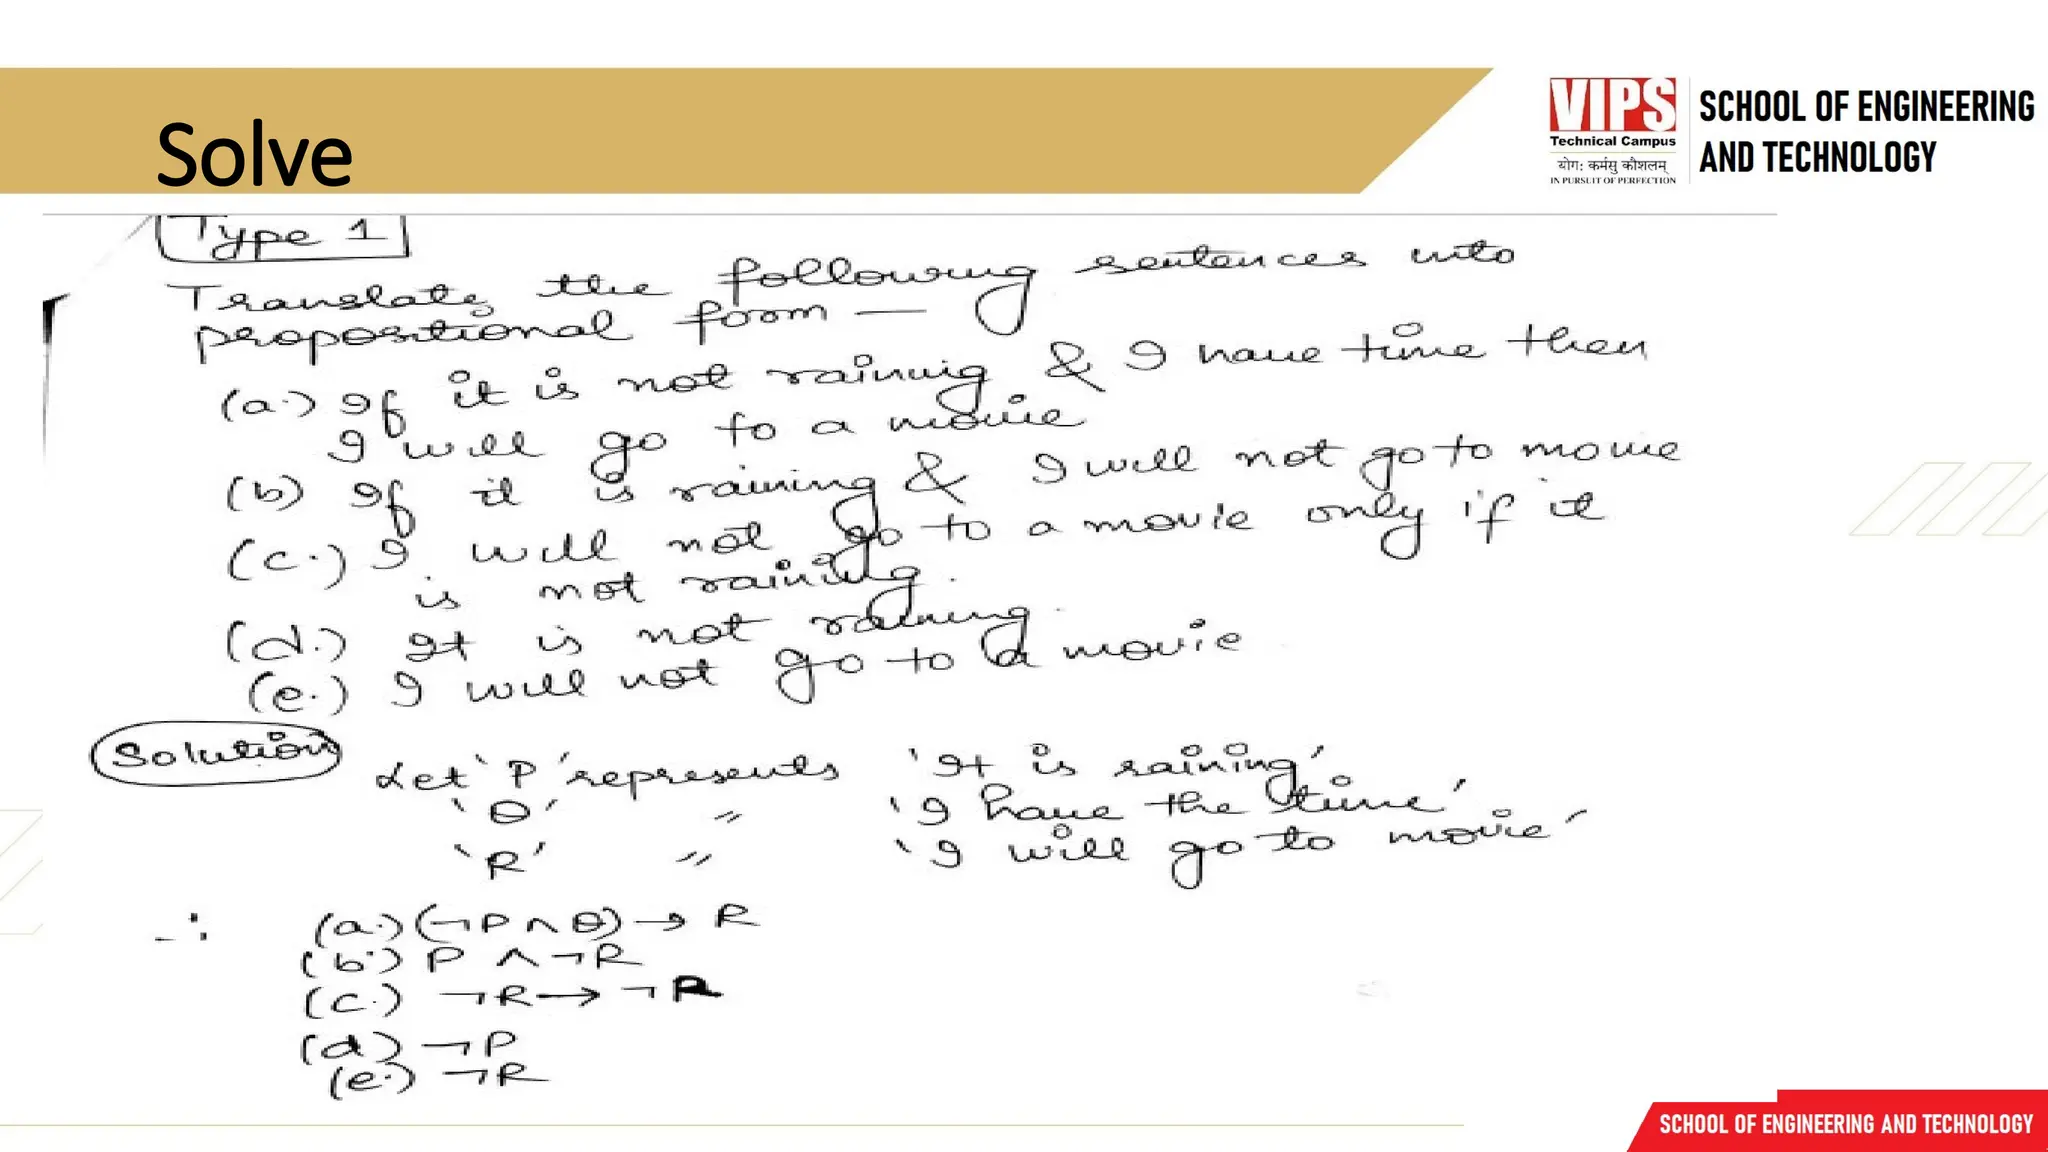 Solve
VIPS
Technical Campus
योगः कर्मसु कौशलम्
IN PURSUIT OF PERFECTION
SCHOOL OF ENGINEERING
AND TECHNOLOGY
Type 1
Translate the following sentences into
propositional form —
(a.) If it is not raining & I have time then
I will go to a movie
(b) If it is raining & I will not go to movie
(c.) I will not go to a movie only if it
is not raining.
(d.) It is not raining.
(e.) I will not go to a movie.
Solution
Let 'P' represents 'It is raining'
'Q' " 'I have the time'
'R' " 'I will go to movie'
∴ (a.) (¬P ∧ Q) → R
(b.) P ∧ ¬R
(c.) ¬R → ¬
(d) ¬P
(e.) ¬R
SCHOOL OF ENGINEERING AND TECHNOLOGY